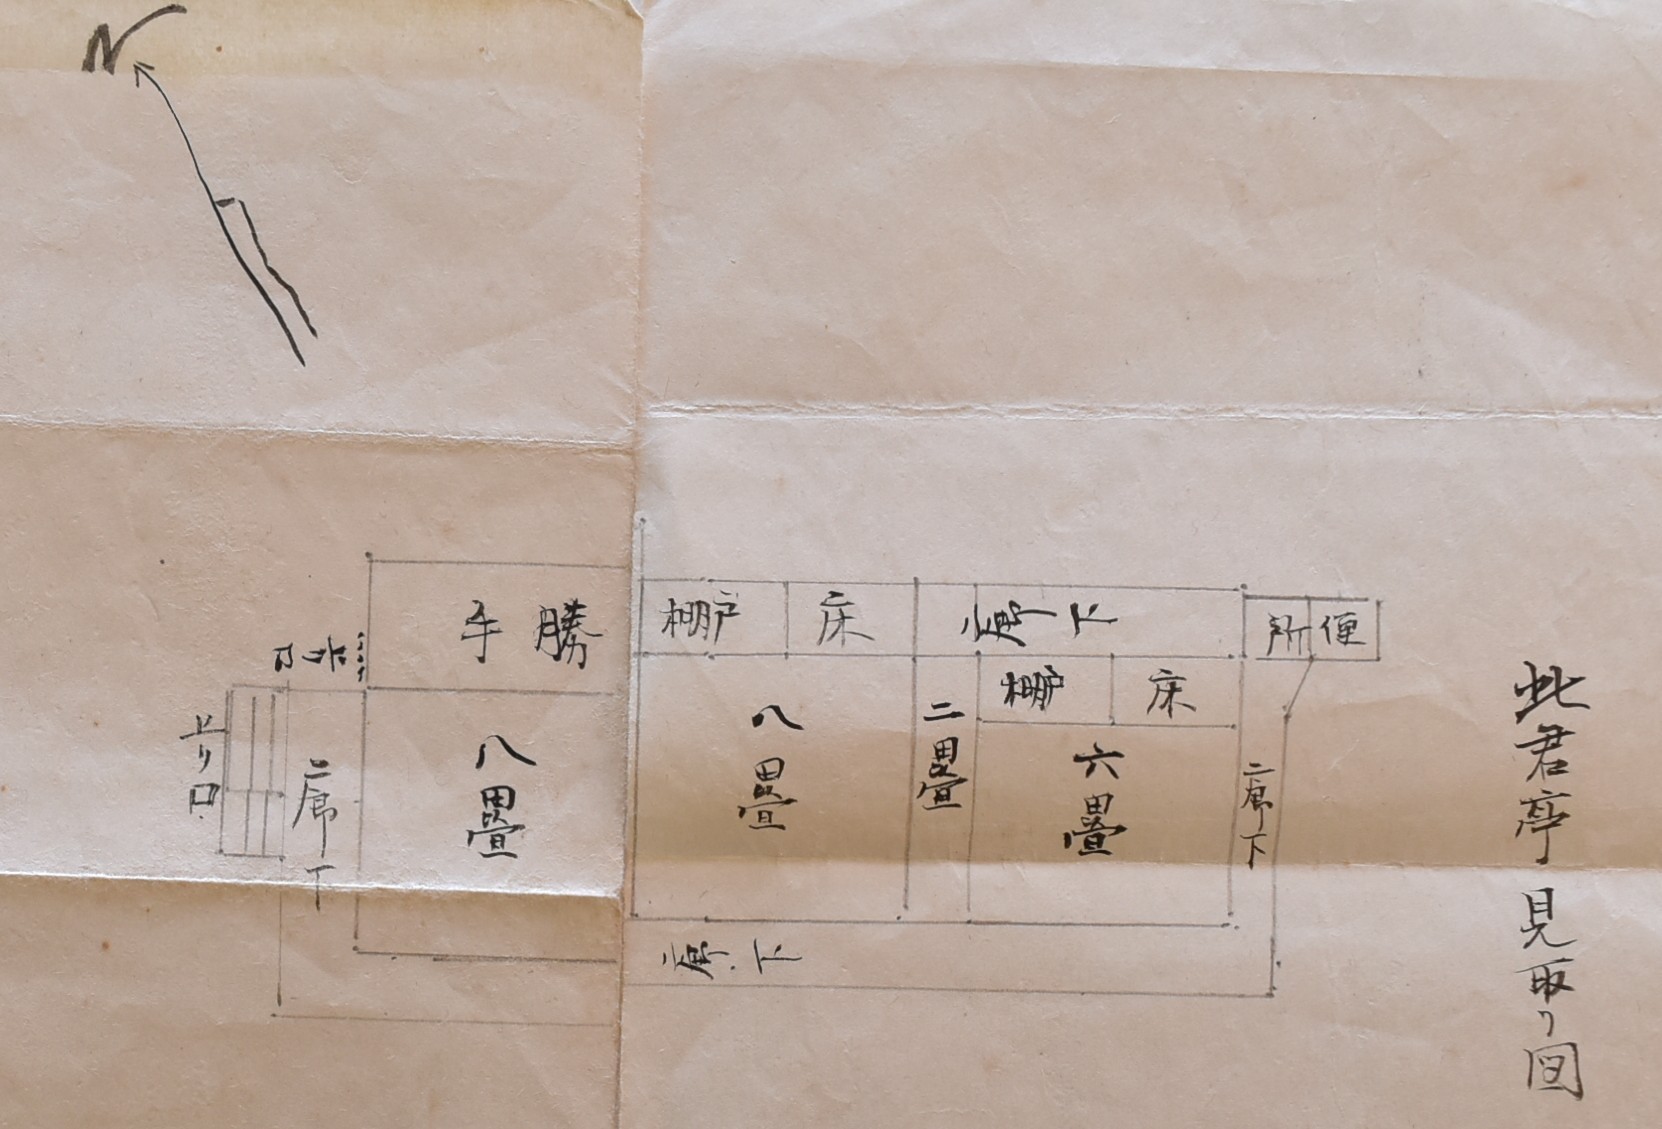 此君亭 見取り図
N
便所
廊下
床
戸棚
勝手
床
戸棚
廊下
六畳
二畳
八畳
八畳
廊下
上り口
廊下